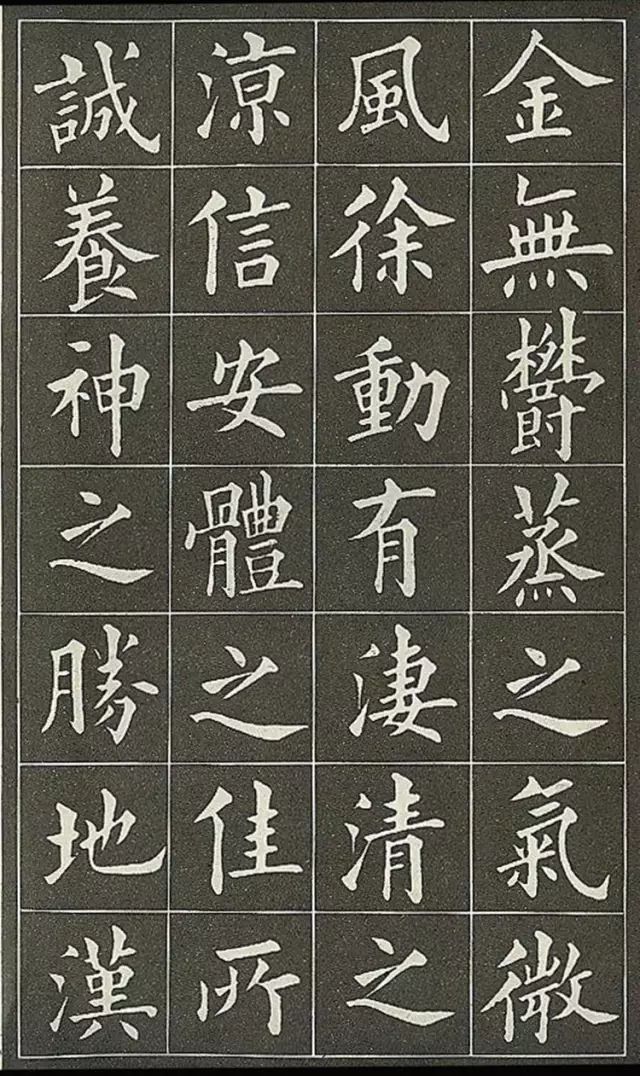 金無欝蒸之氣微
風徐動有淒清之
涼信安體之佳所
誠養神之勝地漢